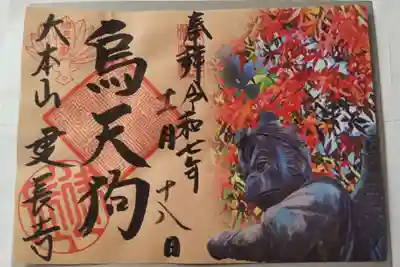 奉拝 令和七年
十一月
十八日
烏天狗
大本山 建長寺